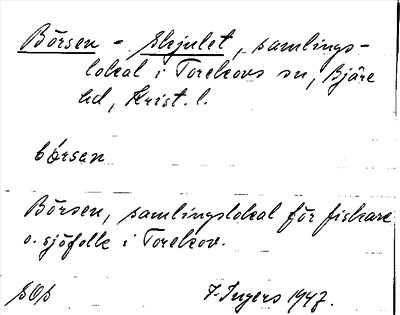 Börsen = Skjulet, samlings-
lokal i Torekovs sn, Bjäre
hd, Krist. l.
bórsen
Börsen, samlingslokal för fiskare
o. sjöfolk i Torekov.
SOs
F. Ingers 1947.